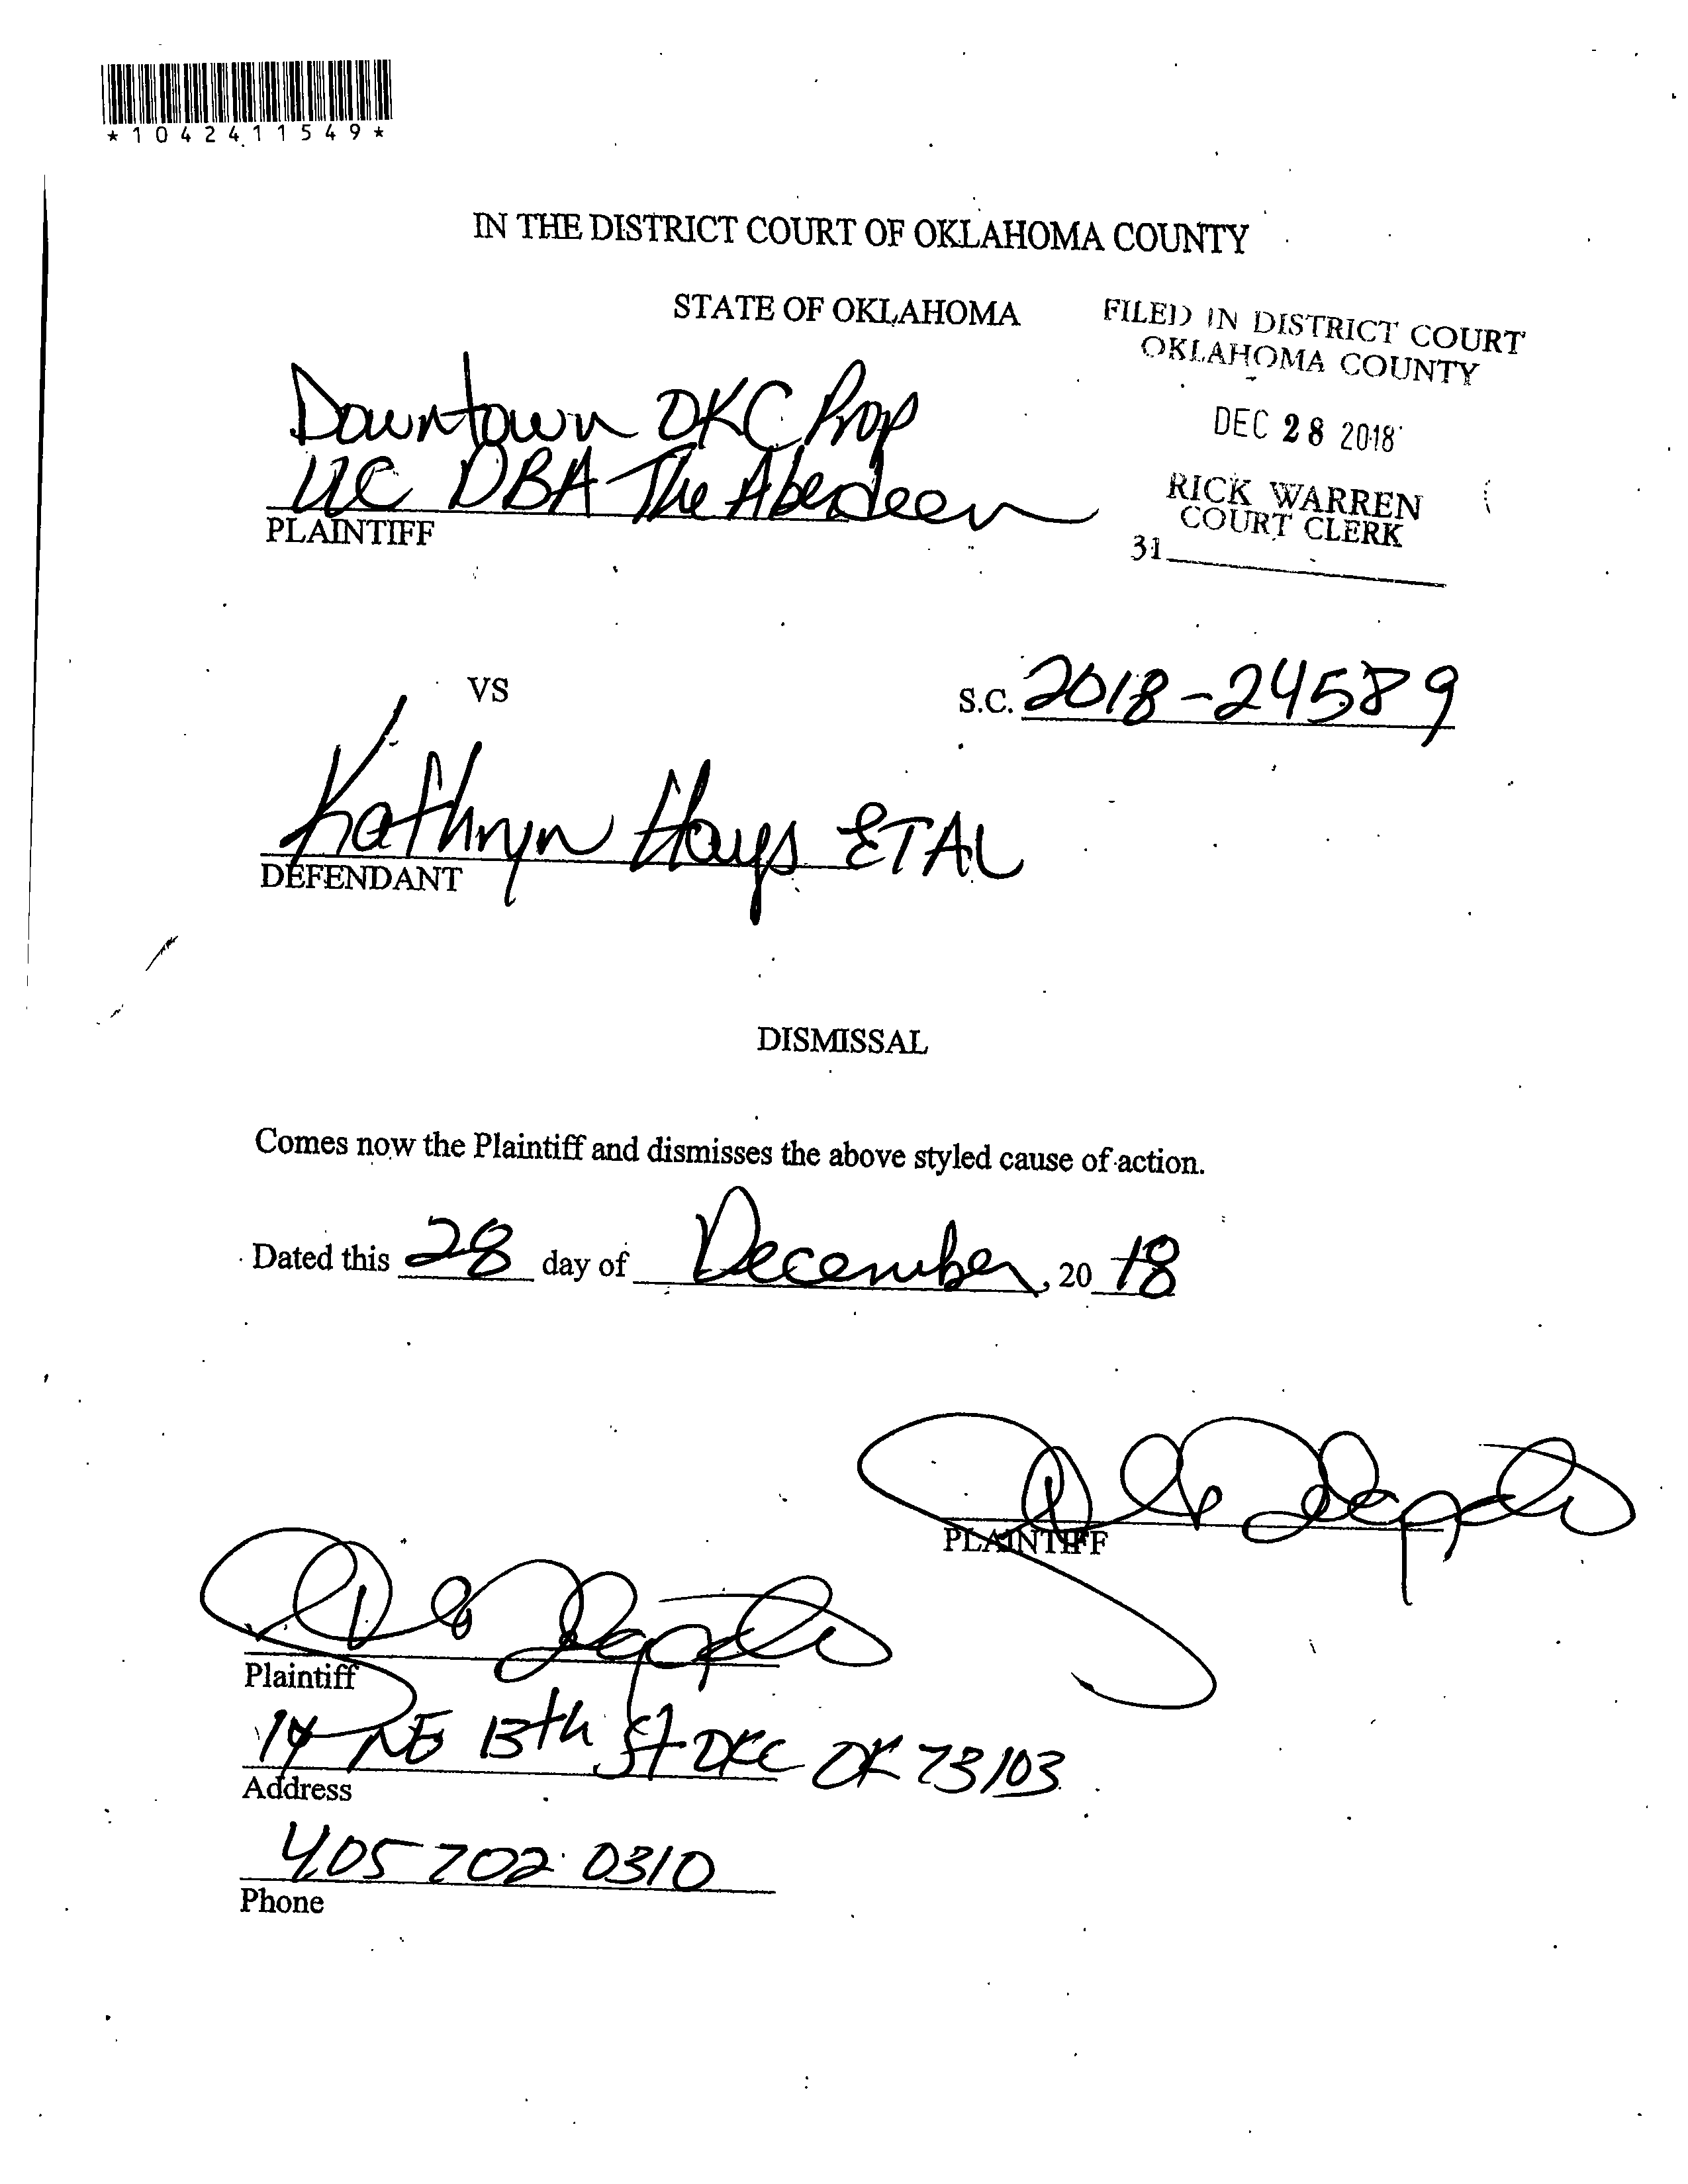 *1042411549*
IN THE DISTRICT COURT OF OKLAHOMA COUNTY
STATE OF OKLAHOMA
FILED IN DISTRICT COURT
OKLAHOMA COUNTY
DEC 28 2018
RICK WARREN
COURT CLERK
31
Downtown OKC Prop
LLC DBA The Aberdeen
PLAINTIFF
VS
S.C. 2018-24589
Kathryn Hays ETAL
DEFENDANT
DISMISSAL
Comes now the Plaintiff and dismisses the above styled cause of action.
Dated this 28 day of December, 20 18
PLAINTIFF
Plaintiff
14 NE 13th St OKC OK 73103
Address
405 702 0310
Phone